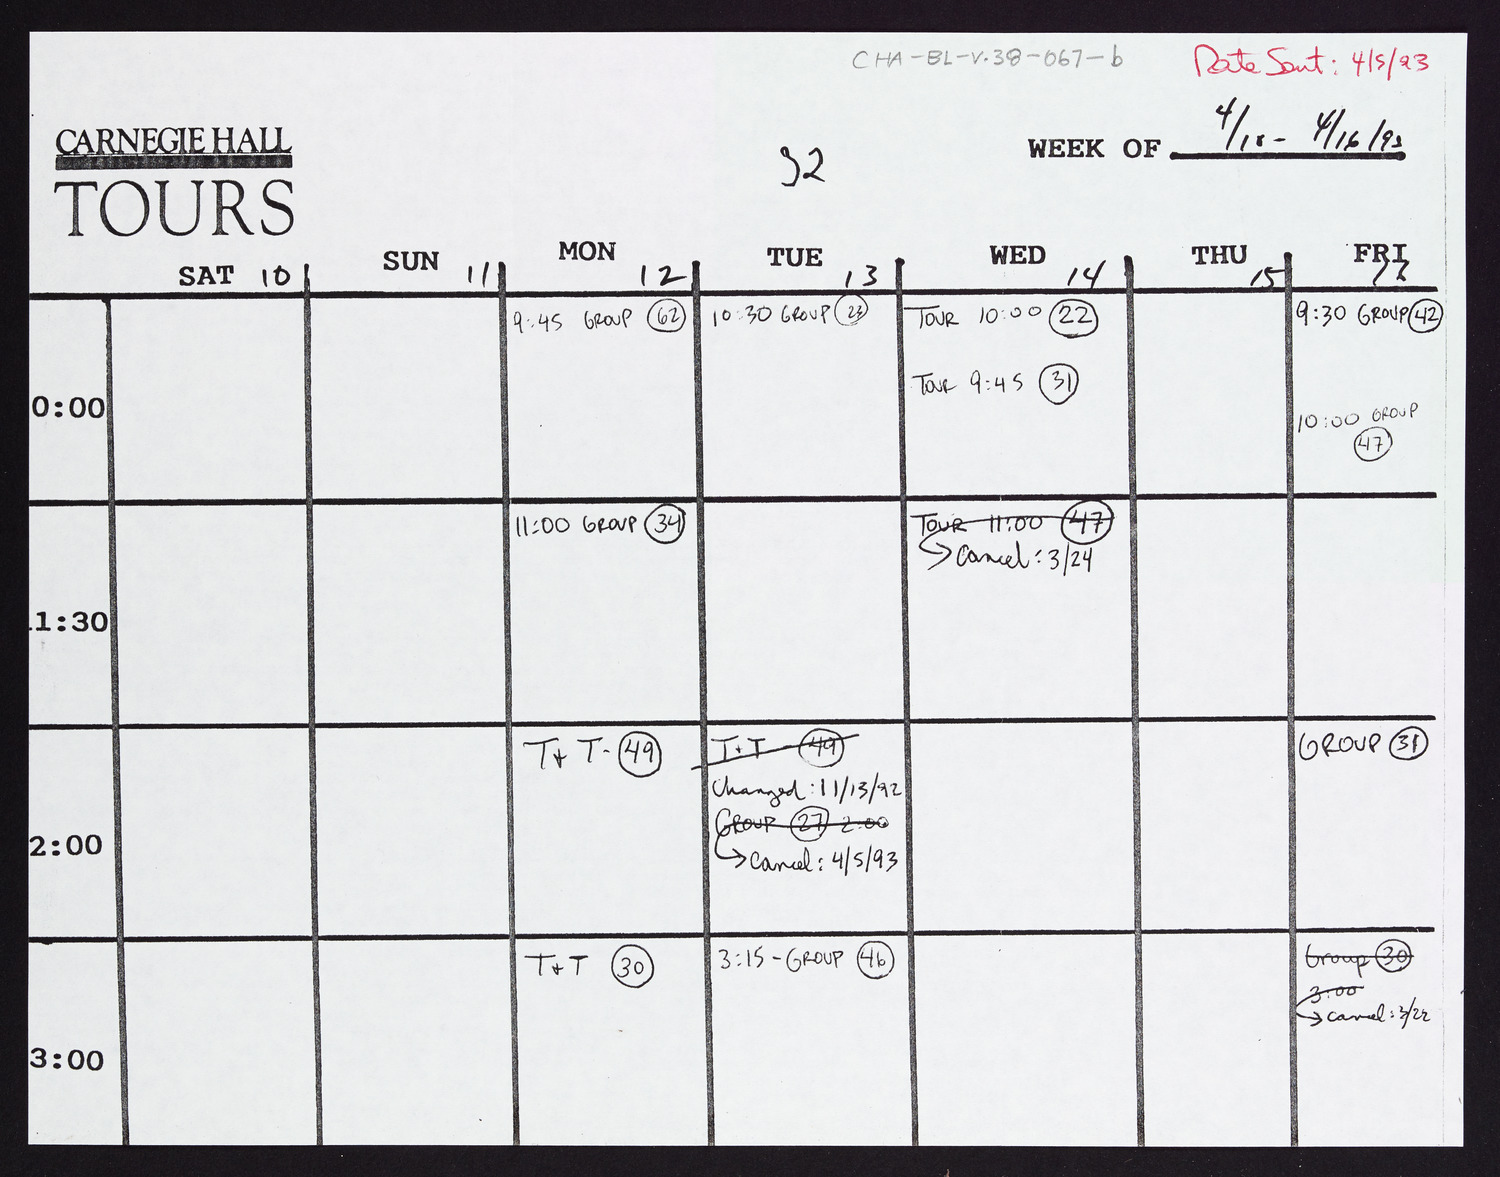 CHA-BL-V.38-067-b
Date Sent: 4/5/93
CARNEGIE HALL
TOURS
32
WEEK OF 4/10 - 4/16/93
SAT 10
SUN 11
MON 12
TUE 13
WED 14
THU 15
FRI
0:00
9:45 GROUP 62
10:30 GROUP 23
TOUR 10:00 22
TOUR 9:45 31
9:30 GROUP 42
10:00 GROUP
47
1:30
11:00 GROUP 34
TOUR 11:00 47
Cancel: 3/24
2:00
T+T- 49
T+T 49
Changed: 11/13/92
GROUP 27 2:00
Cancel: 4/5/93
GROUP 31
3:00
T+T 30
3:15-GROUP 46
Group 30
3:00
cancel: 3/22